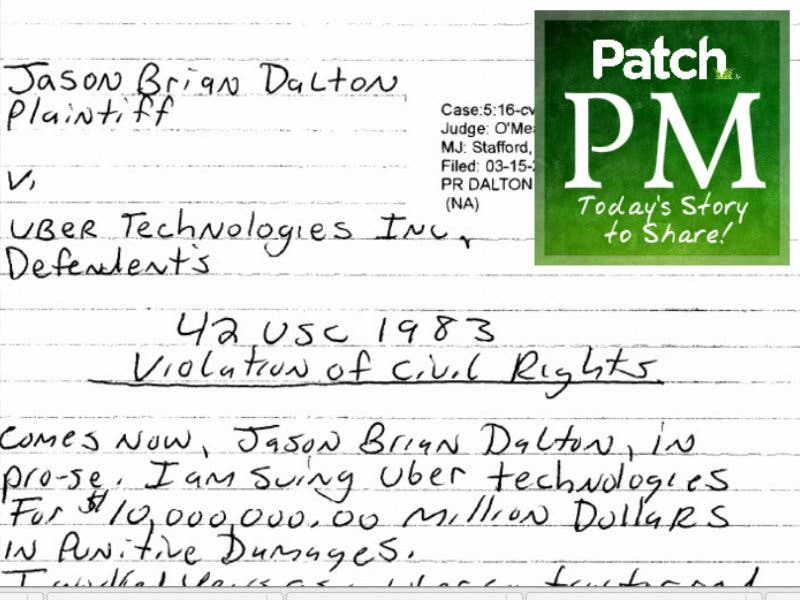 Jason Brian Dalton
Plaintiff
v.
Uber Technologies Inc,
Defendent's
42 USC 1983
Violation of Civil Rights.
Comes Now, Jason Brian Dalton, in
pro-se. I am suing Uber technologies
For $10,000,000.00 million Dollars
in Punitive Damages.
Case:5:16-cv
Judge: O'Mea
MJ: Stafford,
Filed: 03-15-2
PR DALTON
(NA)
Patch
PM
Today's Story
to Share!